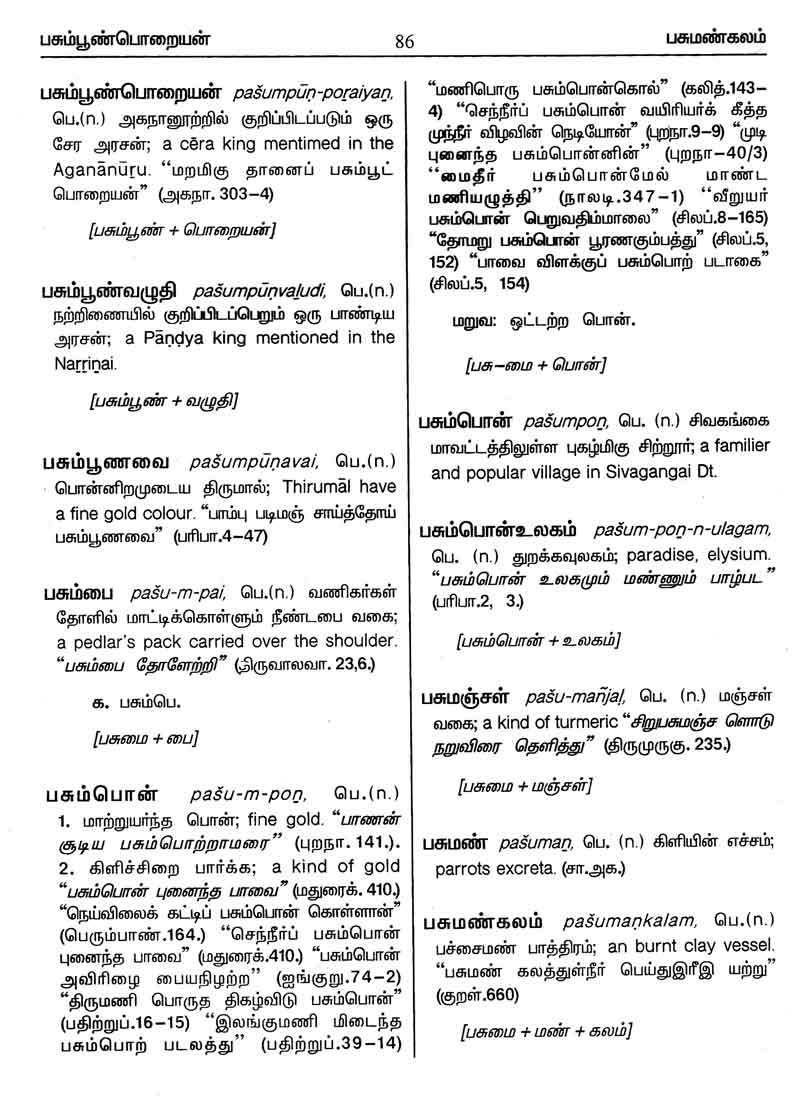 பசும்பூண்பொறையன்
86
பசுமண்கலம்
பசும்பூண்பொறையன் pašumpūṇ-poṟaiyaṉ,
பெ.(n.) அகநானூற்றில் குறிப்பிடப்படும் ஒரு
சேர அரசன்; a cēra king mentimed in the
Aganāṉūṟu. “மறமிகு தானைப் பசும்பூட்
பொறையன்” (அகநா. 303–4)
[பசும்பூண் + பொறையன்]
பசும்பூண்வழுதி pašumpūṇvaḻudi, பெ.(n.)
நற்றிணையில் குறிப்பிடப்பெறும் ஒரு பாண்டிய
அரசன்; a Pāṇḍya king mentioned in the
Naṟṟiṇai.
[பசும்பூண் + வழுதி]
பசும்பூணவை pašumpūṇavai, பெ.(n.)
பொன்னிறமுடைய திருமால்; Thirumāl have
a fine gold colour. “பாம்பு படிமஞ் சாய்த்தோய்
பசும்பூணவை” (பரிபா.4–47)
பசும்பை pašu-m-pai, பெ.(n.) வணிகர்கள்
தோளில் மாட்டிக்கொள்ளும் நீண்டபை வகை;
a pedlar's pack carried over the shoulder.
“பசும்பை தோளேற்றி” (திருவாலவா. 23,6.)
க. பசும்பெ.
[பசுமை + பை]
பசும்பொன் pašu-m-poṉ, பெ.(n.)
1. மாற்றுயர்ந்த பொன்; fine gold. “பாணன்
சூடிய பசும்பொற்றாமரை” (புறநா. 141.).
2. கிளிச்சிறை பார்க்க; a kind of gold
“பசும்பொன் புனைந்த பாவை” (மதுரைக். 410.)
“நெய்விலைக் கட்டிப் பசும்பொன் கொள்ளான்”
(பெரும்பாண்.164.) “செந்நீர்ப் பசும்பொன்
புனைந்த பாவை” (மதுரைக்.410.) “பசும்பொன்
அவிரிழை பையநிழற்ற” (ஐங்குறு.74–2)
“திருமணி பொருத திகழ்விடு பசும்பொன்”
(பதிற்றுப்.16–15) “இலங்குமணி மிடைந்த
பசும்பொற் படலத்து” (பதிற்றுப்.39–14)
“மணிபொரு பசும்பொன்கொல்” (கலித்.143–
4) “செந்நீர்ப் பசும்பொன் வயிரியர்க் கீத்த
முந்நீர் விழவின் நெடியோன்” (புறநா.9–9) “முடி
புனைந்த பசும்பொன்னின்” (புறநா–40/3)
“மைதீர் பசும்பொன்மேல் மாண்ட
மணியழுத்தி” (நாலடி.347–1) “வீறுயர்
பசும்பொன் பெறுவதிம்மாலை” (சிலப்.8–165)
“தோமறு பசும்பொன் பூரணகும்பத்து” (சிலப்.5,
152) “பாவை விளக்குப் பசும்பொற் படாகை”
(சிலப்.5, 154)
மறுவ: ஒட்டற்ற பொன்.
[பசு–மை + பொன்]
பசும்பொன் pašumpoṉ, பெ. (n.) சிவகங்கை
மாவட்டத்திலுள்ள புகழ்மிகு சிற்றூர்; a familier
and popular village in Sivagangai Dt.
பசும்பொன்உலகம் pašum-poṉ-n-ulagam,
பெ. (n.) துறக்கவுலகம்; paradise, elysium.
“பசும்பொன் உலகமும் மண்ணும் பாழ்பட”
(பரிபா.2, 3.)
[பசும்பொன் + உலகம்]
பசுமஞ்சள் pašu-mañjaḷ, பெ. (n.) மஞ்சள்
வகை; a kind of turmeric “சிறுபசுமஞ்ச ளொடு
நறுவிரை தெளித்து” (திருமுருகு. 235.)
[பசுமை + மஞ்சள்]
பசுமண் pašumaṇ, பெ. (n.) கிளியின் எச்சம்;
parrots excreta. (சா.அக.)
பசுமண்கலம் pašumaṇkalam, பெ.(n.)
பச்சைமண் பாத்திரம்; an burnt clay vessel.
“பசுமண் கலத்துள்நீர் பெய்துஇரீஇ யற்று”
(குறள்.660)
[பசுமை + மண் + கலம்]